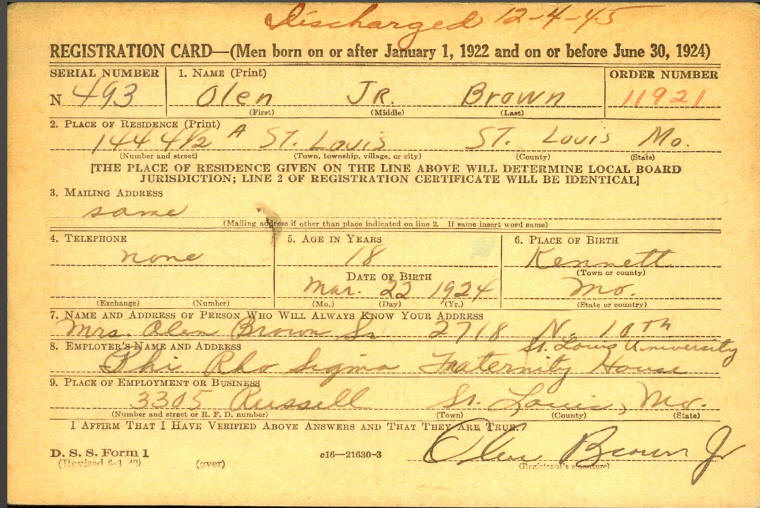 Discharged 12-4-45
REGISTRATION CARD—(Men born on or after January 1, 1922 and on or before June 30, 1924)
SERIAL NUMBER 1. NAME (Print) ORDER NUMBER
N 493 Olen JR. Brown 11921
(First) (Middle) (Last)
2. PLACE OF RESIDENCE (Print)
1444 1/2 A ST. Louis ST. Louis Mo.
(Number and street) (Town, township, village, or city) (County) (State)
[THE PLACE OF RESIDENCE GIVEN ON THE LINE ABOVE WILL DETERMINE LOCAL BOARD
JURISDICTION; LINE 2 OF REGISTRATION CERTIFICATE WILL BE IDENTICAL]
3. MAILING ADDRESS
same
(Mailing address if other than place indicated on line 2. If same insert word same)
4. TELEPHONE 5. AGE IN YEARS 6. PLACE OF BIRTH
none 18 Kennett
(Town or county)
DATE OF BIRTH
Mar. 22 1924 Mo.
(Exchange) (Number) (Mo.) (Day) (Yr.) (State or country)
7. NAME AND ADDRESS OF PERSON WHO WILL ALWAYS KNOW YOUR ADDRESS
Mrs. Olen Brown Sr 2718 N. 10th
8. EMPLOYER'S NAME AND ADDRESS St. Louis University
Phi Rho Sigma Fraternity House
9. PLACE OF EMPLOYMENT OR BUSINESS
3305 Russell St. Louis, Mo.
(Number and street or R. F. D. number) (Town) (County) (State)
I AFFIRM THAT I HAVE VERIFIED ABOVE ANSWERS AND THAT THEY ARE TRUE.
D. S. S. Form 1 c16—21630-3 Olen Brown Jr
(over) (Registrant's signature)